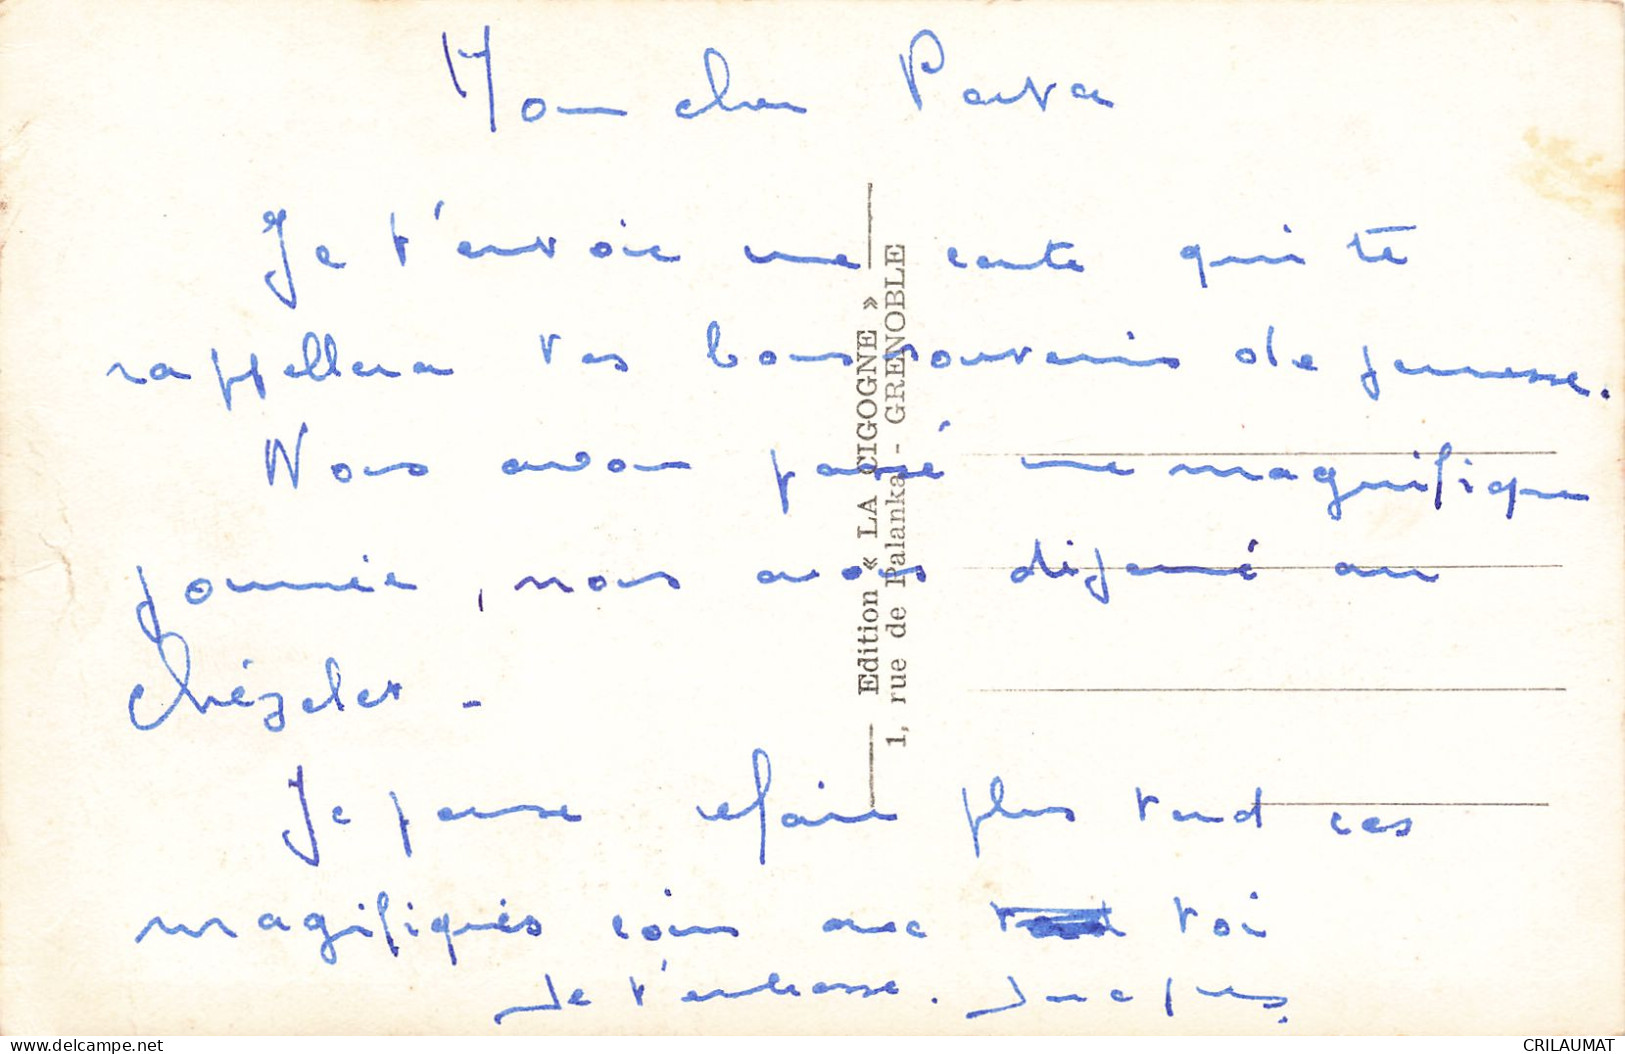 Mon cher Parra
Je t'envoie une carte qui te
rappellera tes bons souvenirs de jeunesse.
Nous avons passé une magnifique
journée, nous avons déjeuné au
Chézelet -
Je pense refaire plus tard ces
magnifiques coins avec toi
Je t'embrasse. Jacques.
Edition « LA CIGOGNE »
1, rue de Palanka - GRENOBLE
delcampe.net
CRILAUMAT